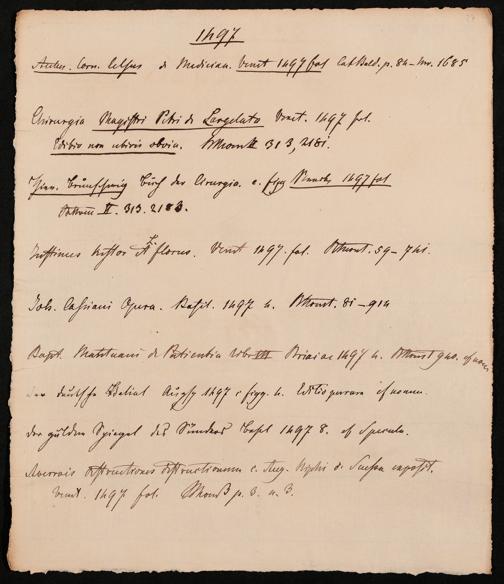 1497
Aulus. Corn. Celsus de Medicina. Venet 1497 fol Cat. Bald. p. 84 – nr. 1685
Chirurgia Magistri Petri de Largelato Venet. 1497 fol.
Editio non ubivis obvia. II 313, 2181.
Hier. Brunschwig Buch der Cirurgia. c. fgg 1497 fol
II. 313. 2183.
Justinus histor & florus. Venet 1497. fol. 59 – 741.
Joh. Cassiani Opera. Basil. 1497 4. 81 – 914
Bapt. Mantuani de Patientia libr III Brixiae 1497 4. 940.
der deutsche Belial Augsp 1497 c fgg. 4. Editio
der gülden Spiegel des Sünders Basel 1497 8. Specula.
Averrois destructiones destructionum c. Aug. Niphi de Suessa exposit.
Venet. 1497 fol. p. 3. n. 3.